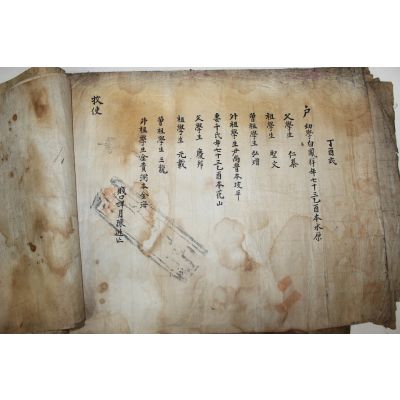 丁酉式
戶 幼學白鳳祥年七十三乙酉本水原
父學生 仁基
祖學生 聖文
曾祖學生 弘增
外祖學生尹尙晋本坡平
妻千氏年七十三乙酉本花山
父學生 慶邦
祖學生 元載
曾祖學生 三龍
外祖學生金貴 本金海
賤口婢月陳
牧使